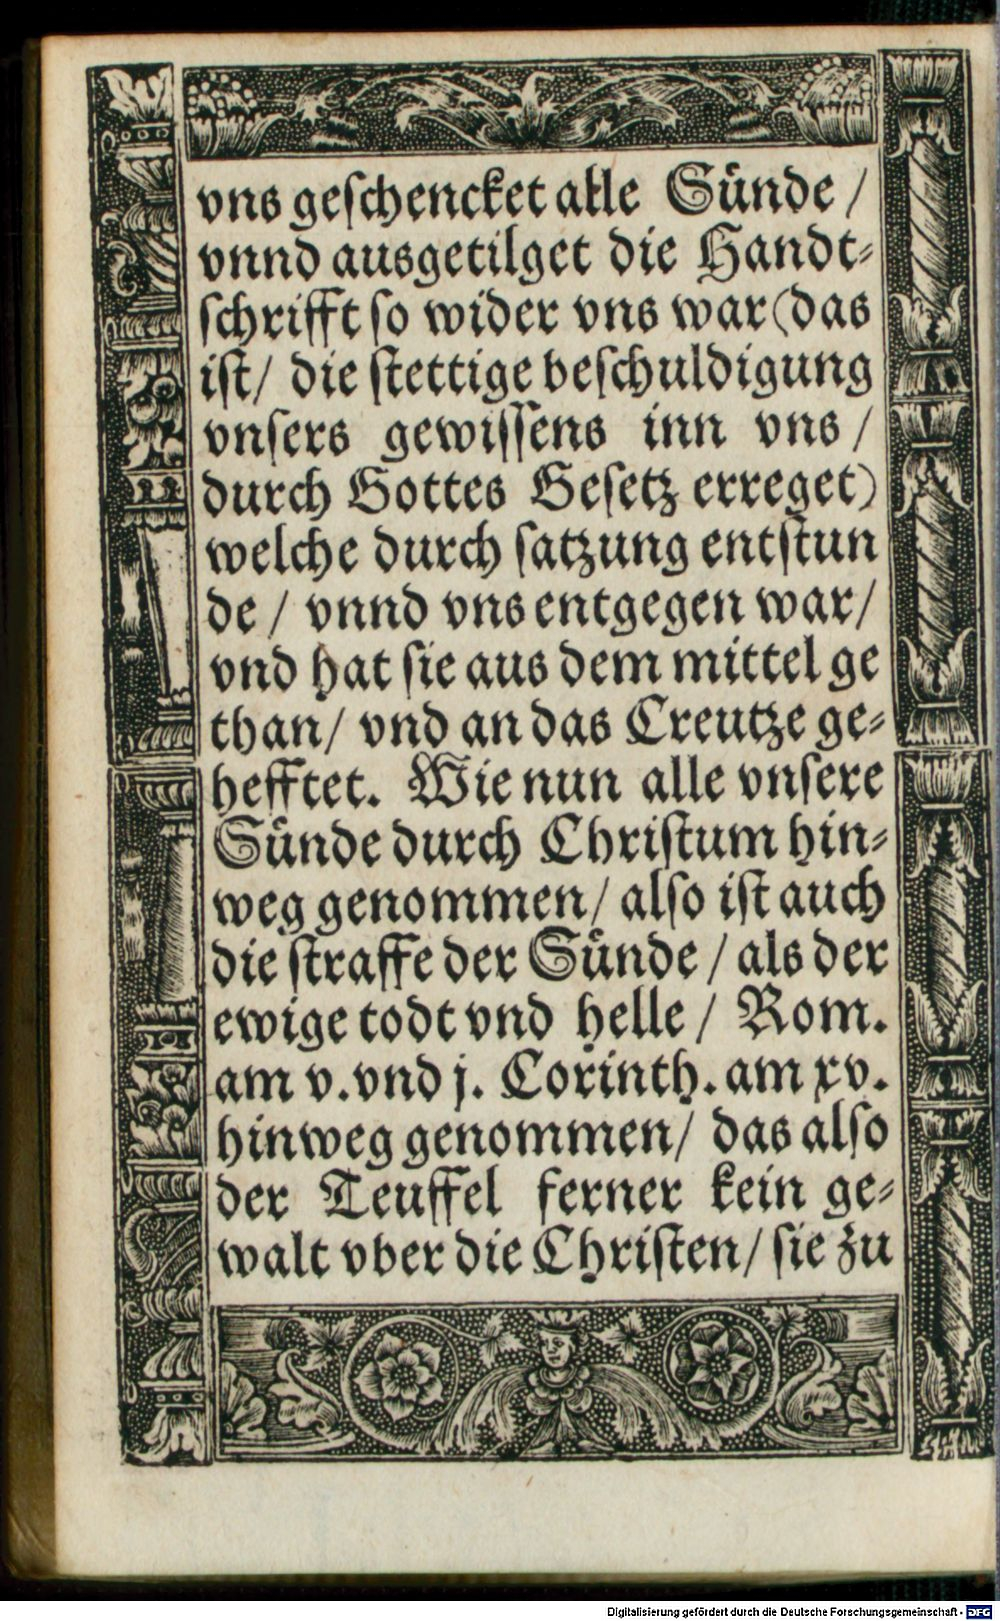 vns geſchencket alle Suͤnde /
vnnd ausgetilget die Handt⸗
ſchrifft ſo wider vns war (das
iſt / die ſtettige beſchuldigung
vnſers gewiſſens inn vns /
durch Gottes Geſetz erreget)
welche durch ſatzung entſtun
de / vnnd vns entgegen war /
vnd hat ſie aus dem mittel ge
than / vnd an das Creutze ge⸗
hefftet. Wie nun alle vnſere
Suͤnde durch Chriſtum hin⸗
weg genommen / alſo iſt auch
die ſtraffe der Suͤnde / als der
ewige todt vnd helle / Rom.
am v. vnd j. Corinth. am xv.
hinweg genommen / das alſo
der Teuffel ferner kein ge⸗
walt vber die Chriſten / ſie zu
Digitalisierung gefördert durch die Deutsche Forschungsgemeinschaft - DFG